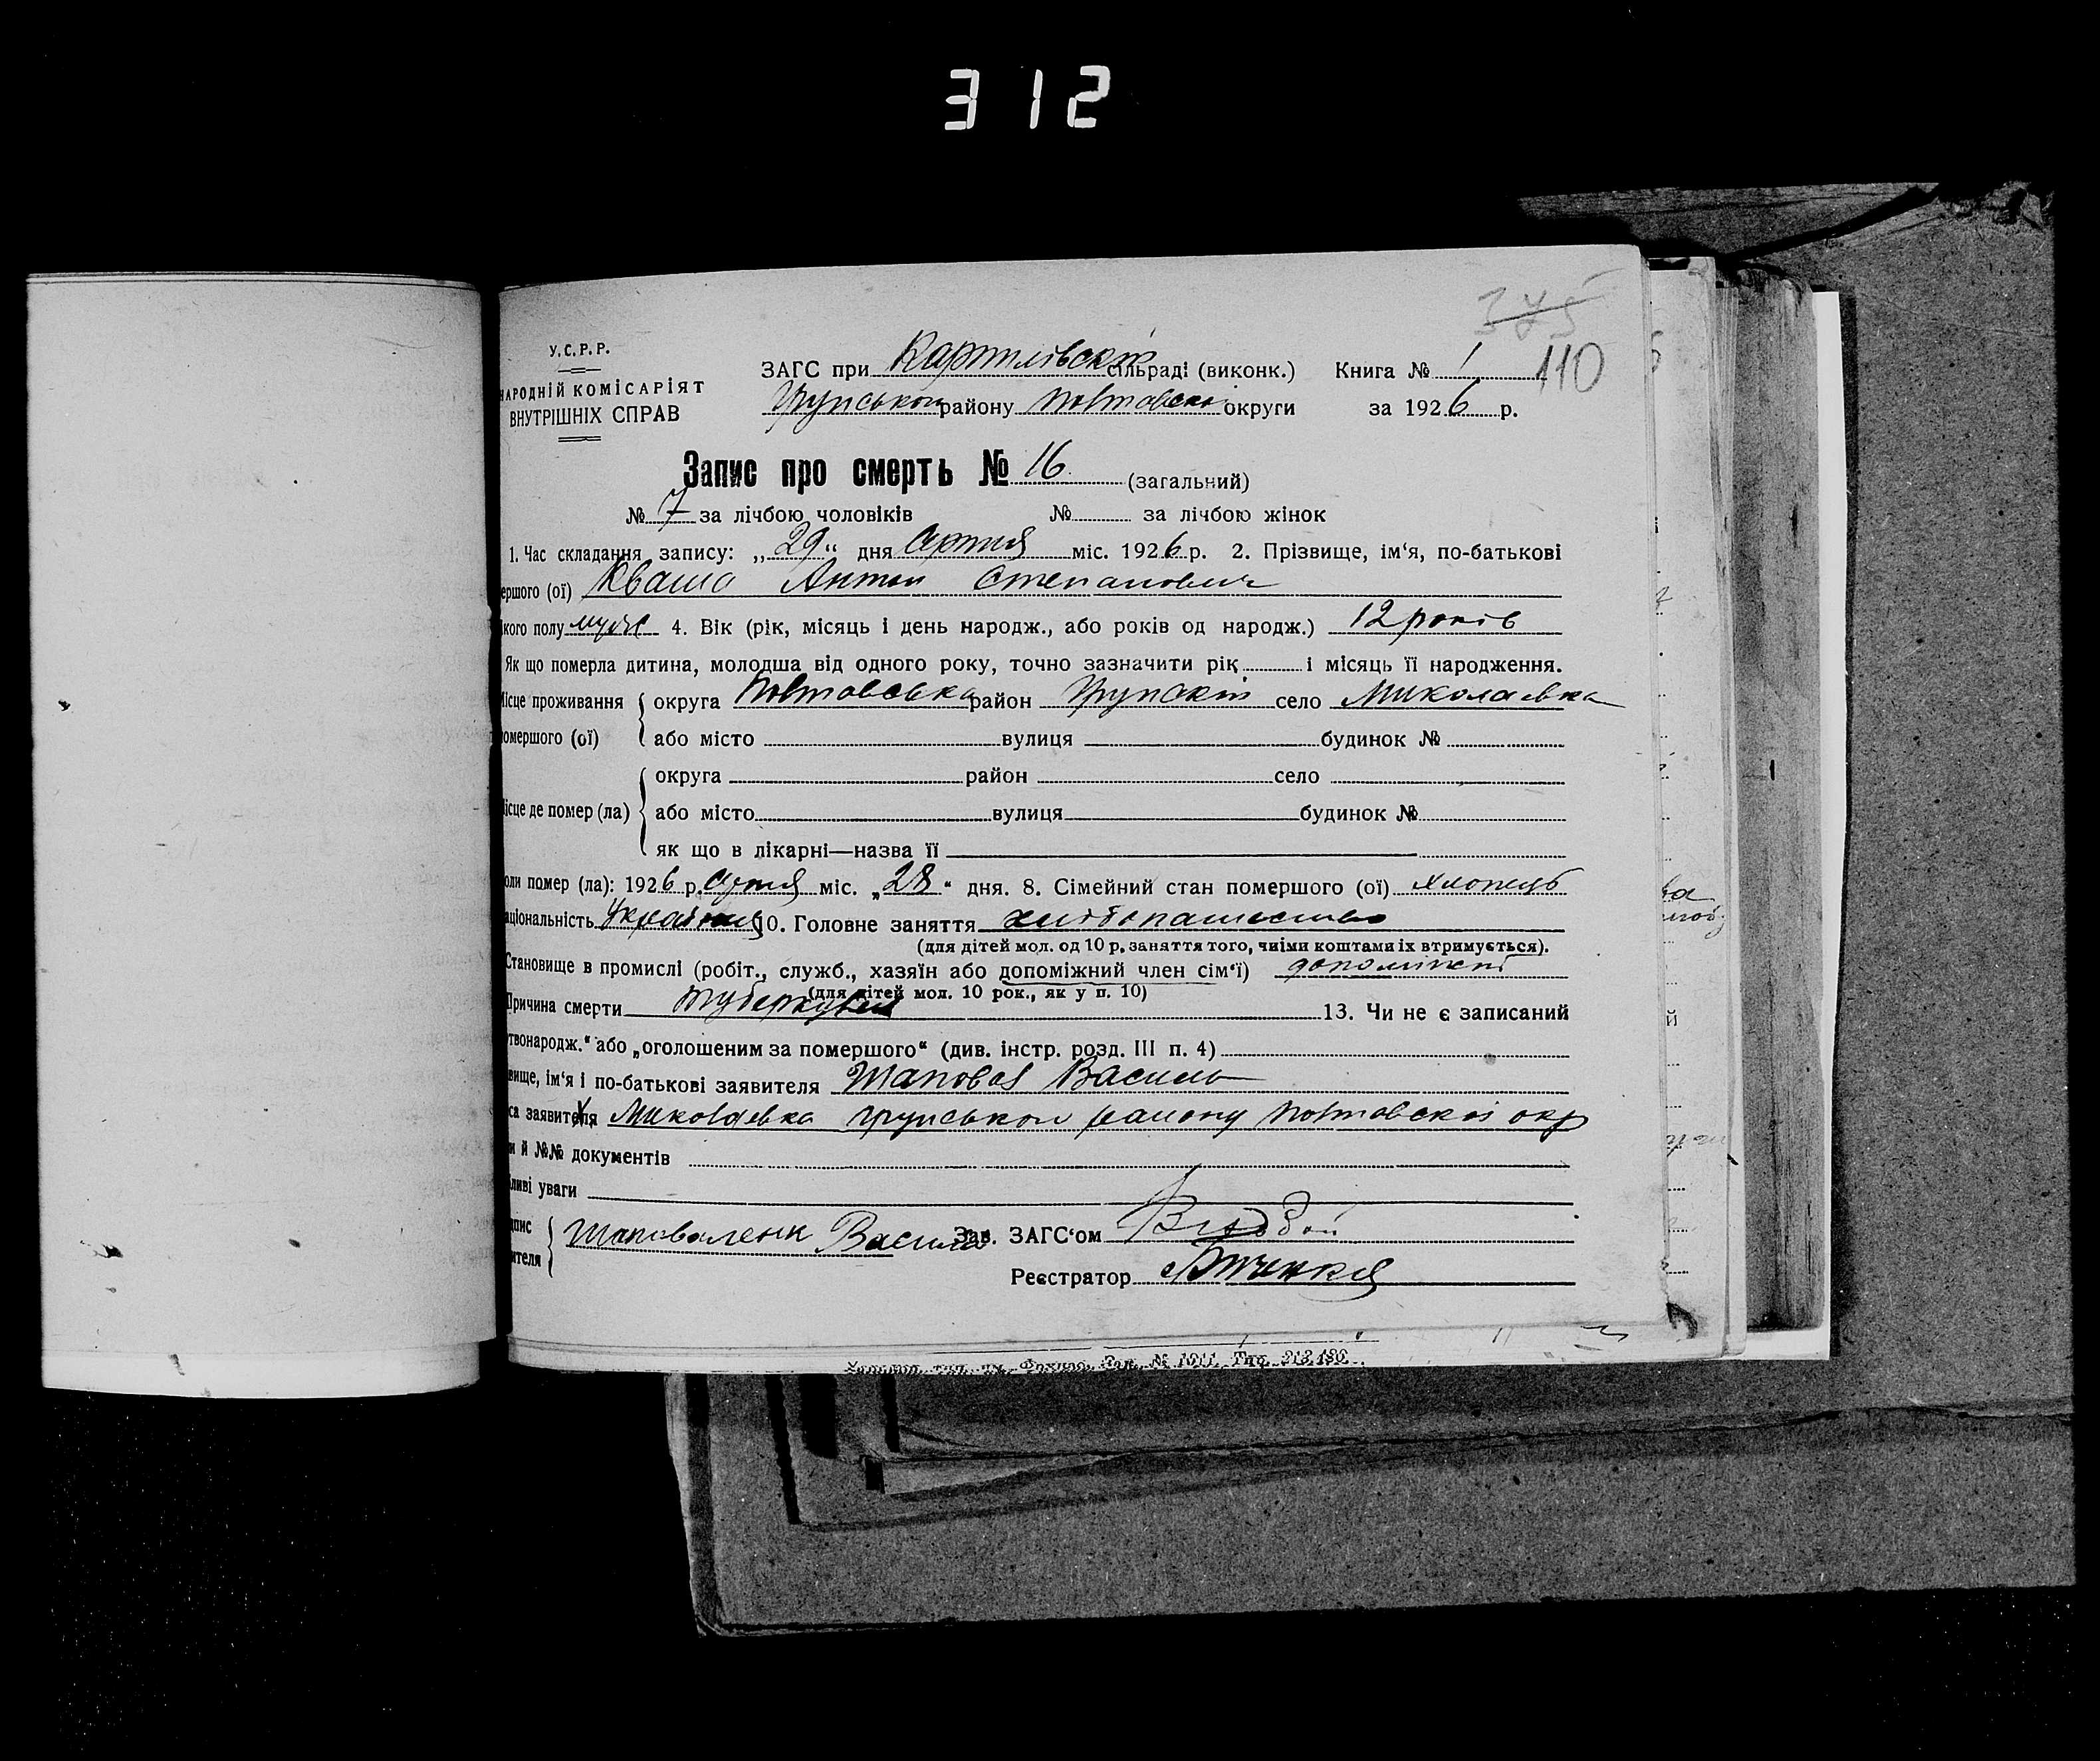 312
375
110
У.С.Р.Р.
НАРОДНІЙ КОМІСАРІЯТ
ВНУТРІШНІХ СПРАВ
ЗАГС при сільраді (виконк.) Книга № 1
району округи за 1926 р.
Запис про смерть № 16 (загальний)
№ 7 за лічбою чоловіків № за лічбою жінок
1. Час складання запису: „29“ дня міс. 1926 р. 2. Прізвище, ім‘я, по-батькові
ершого (ої) Кваша Антон Степанович
кого полу муж 4. Вік (рік, місяць і день народж., або років од народж.) 12 років
Як що померла дитина, молодша від одного року, точно зазначити рік і місяць її народження.
ісце проживання округа Полтавська район село Миколаевка
омершого (ої) або місто вулиця будинок №
округа район село
ісце де помер (ла) або місто вулиця будинок №
як що в лікарні—назва її
оли помер (ла): 1926 р. міс. „28“ дня. 8. Сімейний стан помершого (ої) хлопець
аціональність 10. Головне заняття хлібопашество
(для дітей мол. од 10 р. заняття того, чиїми коштами їх втримується).
Становище в промислі (робіт., служб., хазяїн або допоміжний член сім‘ї)
(для дітей мол. 10 рок., як у п. 10)
Причина смерти 13. Чи не є записаний
твонародж.“ або „оголошеним за помершого“ (див. інстр. розд. III п. 4)
вище, ім‘я і по-батькові заявителя Василь
са заявителя Миколаевка району окр
и й №№ документів
ливі уваги
дпис
ителя Шаповаленк Василь Зав. ЗАГС‘ом
Реєстратор